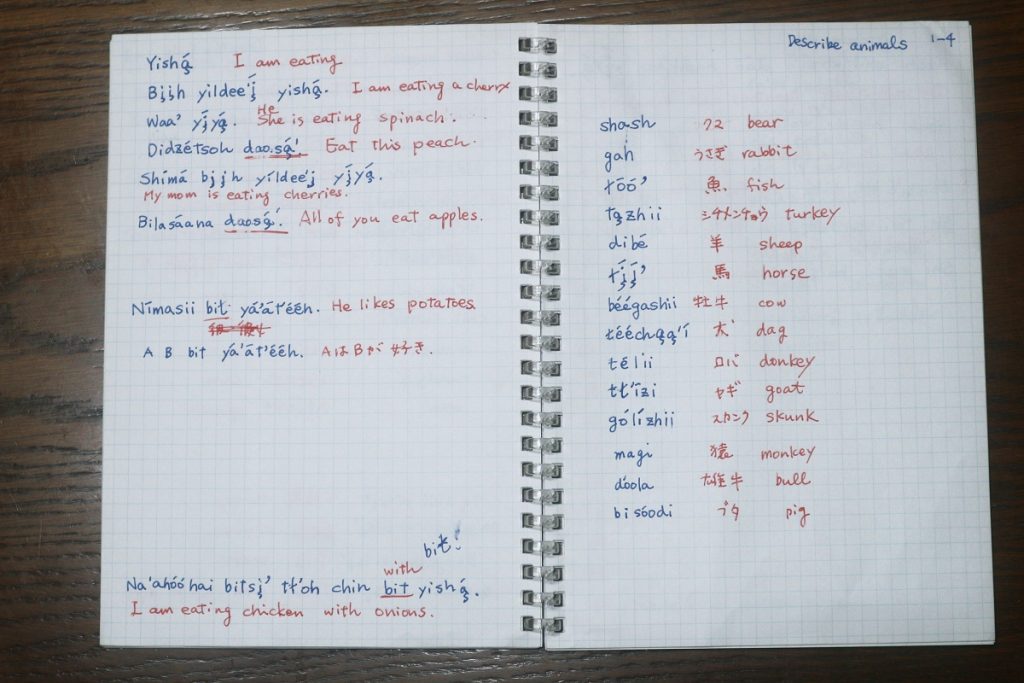 Yishą́ I am eating
Bįįh yildee'į́ yishą́. I am eating a cherry
Waa' yį́yą́. She is eating spinach.
He
Didzétsoh daosą́'. Eat this peach.
Shímá bįįh yíldee'į́ yį́yą́.
My mom is eating cherries.
Bilasáana daosą́'. All of you eat apples.
Nímasii bił yá'át'ééh. He likes potatoes
A B bił yá'át'ééh. AはBが好き.
bił!
with
Na'ahóóhai bitsį' tł'oh chin bił yishą́.
I am eating chicken with onions.
Describe animals 1-4
shash クマ bear
gah うさぎ rabbit
łóó' 魚 fish
tązhii シチメンチョウ turkey
dibé 羊 sheep
łį́į́' 馬 horse
béégashii 牡牛 cow
łééchąą'í 犬 dag
télii ロバ donkey
tł'ízi ヤギ goat
gólízhii スカンク skunk
magi 猿 monkey
dóola 雄牛 bull
bisóodi ブタ pig